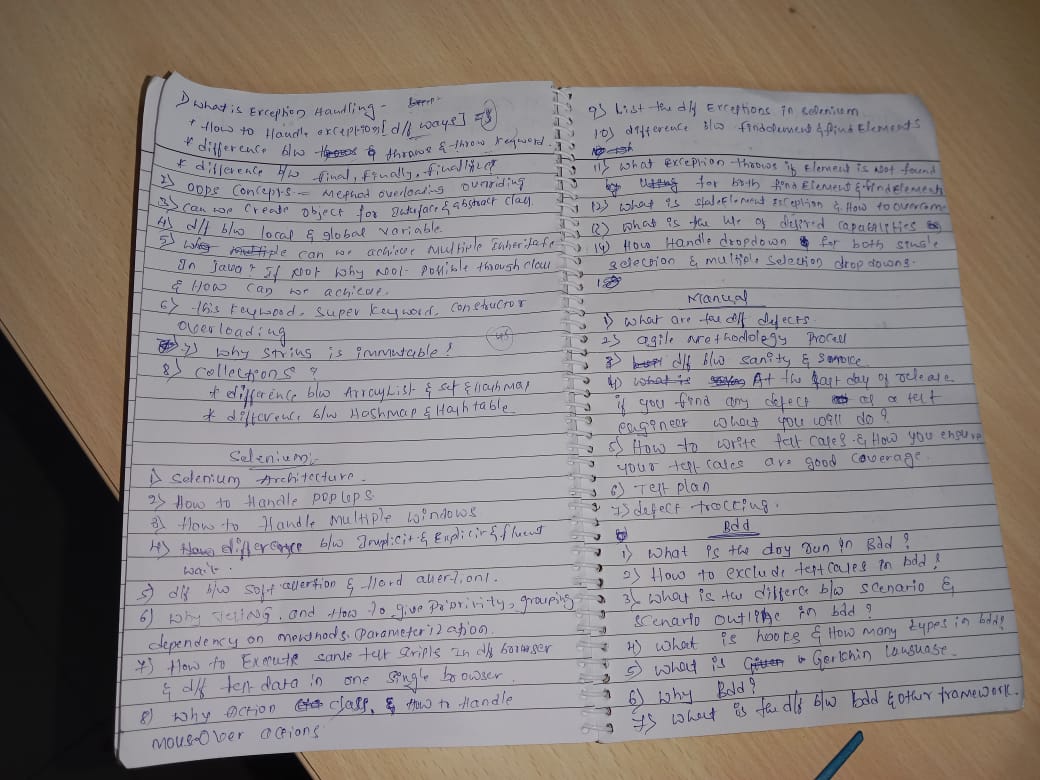 1) what is Exception Handling -
* How to Handle exception [diff ways] = 3
* difference b/w & throws & throw keyword.
* difference b/w final, finally, finalize
2) OOPS Concepts = Method overloading overriding
3) Can we Create Object for Interface & abstract class
4) diff b/w local & global variable.
5) can we achieve Multiple Inheritance
In Java? If Not Why Not Possible through class
& How can we achieve.
6) this keyword, super keyword, constructor
overloading
7) why string is immutable?
8) collections?
* difference b/w ArrayList & set & Hashmap
* difference b/w Hashmap & Hashtable
Selenium:-
1) Selenium Architecture.
2) How to Handle pop Ups
3) How to Handle Multiple windows
4) difference b/w Implicit & Explicit & fluent
wait.
5) diff b/w soft assertion & Hard assertions.
6) Why TestNG, and How to give Priority, grouping
dependency on methods, Parameterization.
7) How to Execute same test scripts In diff browser
& diff test data in one single browser.
8) why Action class, & How to Handle
MouseOver actions
9) List the diff Exceptions in selenium
10) difference b/w findElement & find Elements
11) What Exception throws if Element is Not found
for both find Element & findElements
12) what is staleElement Exception & How to overcome
13) what is the use of desired capabilities
14) How Handle dropdown for both single
selection & multiple selection drop downs.
Manual
1) what are the diff defects.
2) agile methodology Process
3) diff b/w sanity & smoke
4) At the last day of release
if you find any defect as a test
engineer what you will do?
5) How to write test cases & How you ensure
your test cases are good coverage.
6) Test plan
7) defect tracking.
Bdd
1) what is the dry run in Bdd?
2) How to exclude testcases in bdd?
3) what is the difference b/w scenario &
scenario outline in bdd?
4) what is hooks & How many types in bdd?
5) what is Gerkhin language.
6) why Bdd?
7) what is the diff b/w bdd & other framework.